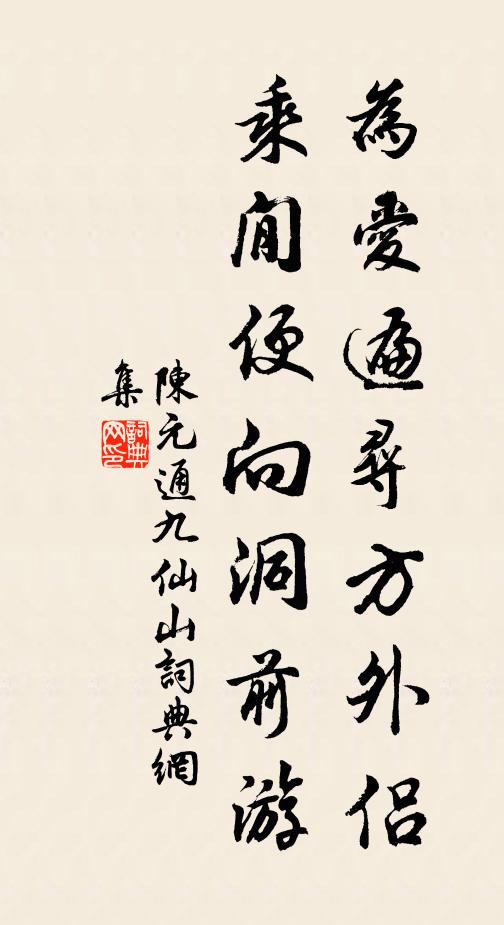 為愛遍尋方外侶
乘閒便向洞前游
陳元通九仙山詞典網
集
詞典
网印